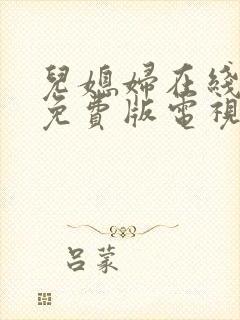 兒媳婦在綫
免費版電視
呂蒙